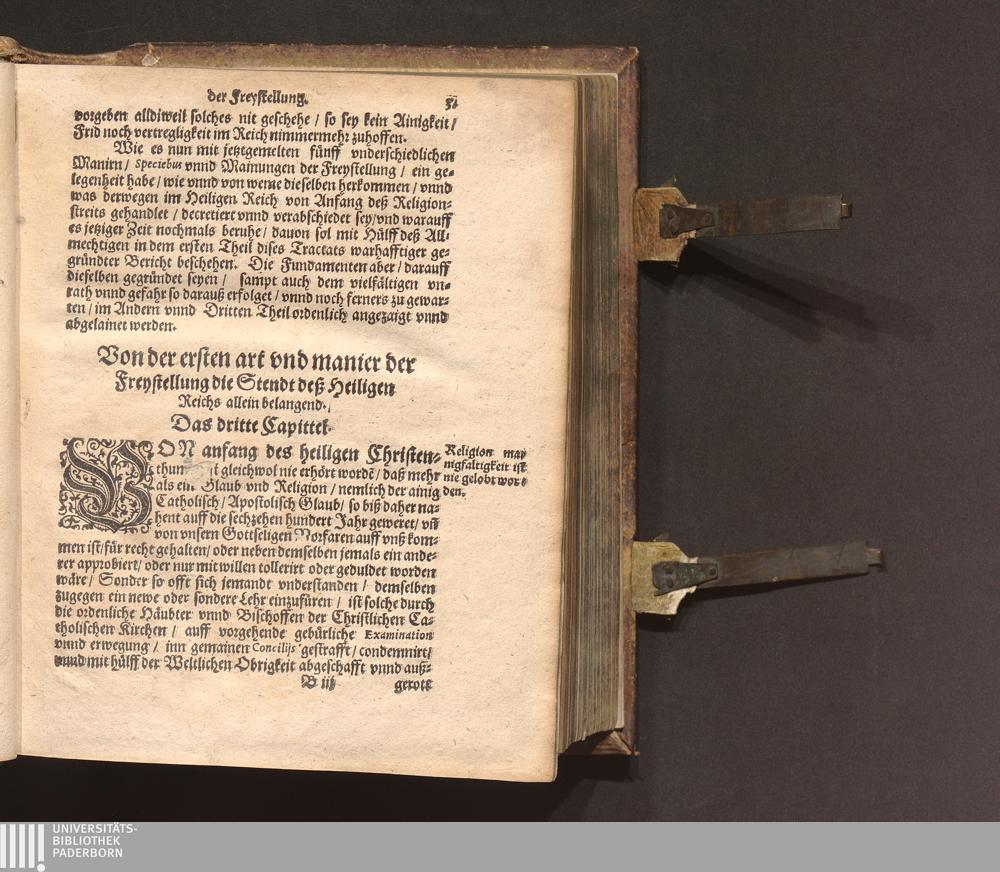 der Freystellung.
vorgeben alldiweil solches nit geschehe / so sey kein Ainigkeit /
Frid noch vertregligkeit im Reich nimmermehr zuhoffen.
Wie es nun mit jetztgemelten fünff vnderschiedlichen
Manirn / Speciebus vnnd Mainungen der Freystellung / ein ge=
legenheit habe / wie vnnd von weme dieselben herkommen / vnnd
was derwegen im Heiligen Reich von Anfang deß Religion=
streits gehandlet / decretiert vnnd verabschiedet sey / vnd warauff
es jetziger Zeit nochmals beruhe / dauon sol mit Hülff deß All=
mechtigen in dem ersten Theil dises Tractats warhafftiger ge=
gründter Bericht beschehen. Die Fundamenten aber / darauff
dieselben gegründet seyen / sampt auch dem vielfältigen vn=
rath vnnd gefahr so darauß erfolget / vnnd noch ferners zu gewar=
ten / im Andern vnnd Dritten Theil ordenlich angezaigt vnnd
abgelainet werden.
Von der ersten art vnd manier der
Freystellung die Stendt deß Heiligen
Reichs allein belangend.
Das dritte Capittel.
VON anfang des heiligen Christen=
thum ist gleichwol nie erhört wordē / daß mehr
als ein Glaub vnd Religion / nemlich der ainig
Catholisch / Apostolisch Glaub / so biß daher na=
hent auff die sechzehen hundert Jahr geweret / vñ
von vnsern Gottseligen Vorfaren auff vnß kom=
men ist / für recht gehalten / oder neben demselben jemals ein ande=
rer approbiert / oder nur mit willen tollerirt oder geduldet worden
wäre / Sonder so offt sich jemandt vnderstanden / demselben
zugegen ein newe oder sondere Lehr einzufüren / ist solche durch
die ordenliche Häubter vnnd Bischoffen der Christlichen Ca=
tholischen Kirchen / auff vorgehende gebürliche Examination
vnnd erwegung / inn gemainen Concilijs gestrafft / condemnirt /
vnnd mit hülff der Weltlichen Obrigkeit abgeschafft vnnd auß=
B iij gerott
Religion man
nigfaltigkeit ist
nie gelobt wor=
den.
UNIVERSITÄTS-
BIBLIOTHEK
PADERBORN